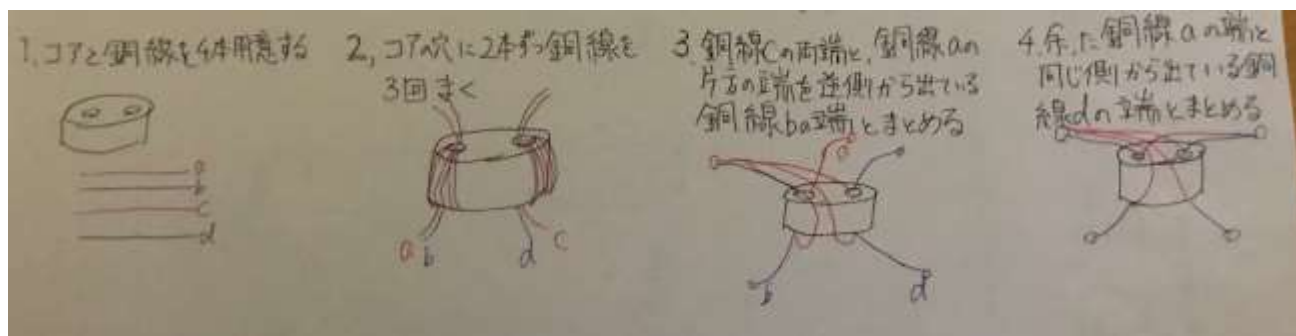 1. コアと銅線を4本用意する
a
b
c
d
2, コアの穴に2本ずつ銅線を
3回まく
a b
d
c
3. 銅線Cの両端と、銅線aの
片方の端を逆側から出ている
銅線bの端とまとめる
a
b
d
4. 余った銅線aの端と
同じ側から出ている銅
線dの端とまとめる